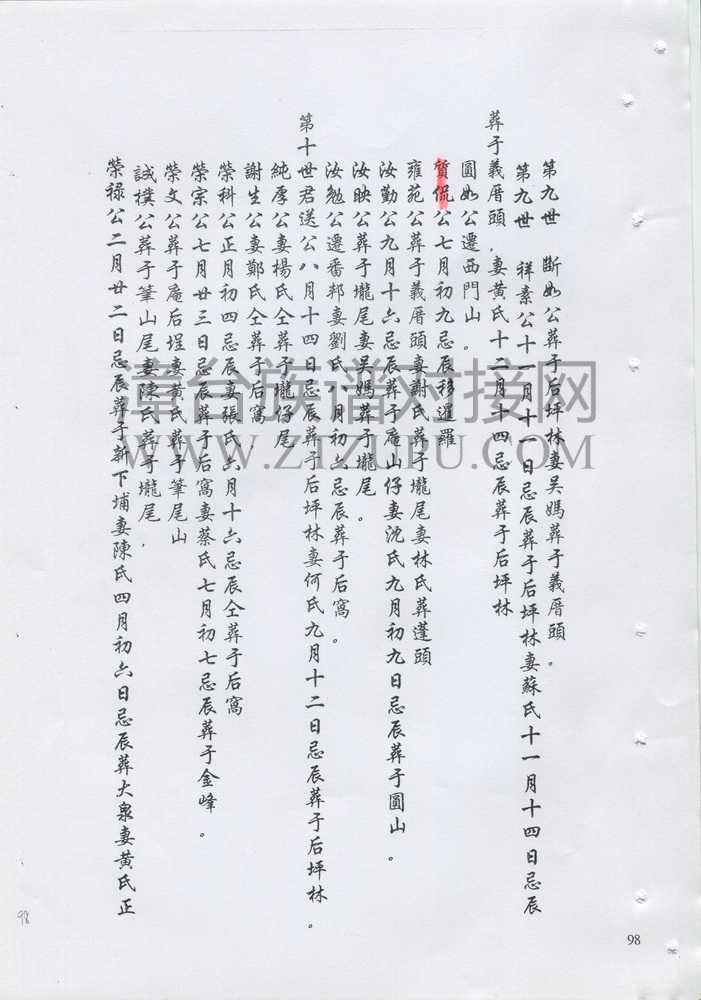 第九世 斷如公葬于后坪林妻吴媽葬于義厝頭。
第九世 祥素公十一月十一日忌辰葬于后坪林妻蘇氏十一月十四日忌辰
葬于義厝頭，妻黄氏十二月十四忌辰葬于后坪林
圓如公遷西門山。
質侃公七月初九忌辰移暹羅
雍苑公葬于義厝頭妻謝氏葬于壠尾妻林氏葬蓬頭
汝勤公九月十六忌辰葬于庵山仔妻沈氏九月初九日忌辰葬于圓山。
汝映公葬于壠尾妻吴媽葬于壠尾。
汝勉公遷番邦妻劉氏八月初六忌辰葬于后窩。
第十世君送公八月十四日忌辰葬于后坪林妻何氏九月十二日忌辰葬于后坪林。
純厚公妻楊氏仝葬于壠仔尾
謝生公妻鄭氏仝葬于后窩
榮科公正月初四忌辰妻張氏六月十六忌辰仝葬于后窩
榮宗公七月廿三日忌辰葬于后窩妻蔡氏七月初七忌辰葬于金峰。
榮文公葬于庵后埕妻黄氏葬于筆尾山
誠樸公葬于筆山尾妻陳氏葬于壠尾，
榮禄公二月廿二日忌辰葬于新下埔妻陳氏四月初六日忌辰葬大泉妻黄氏正
台族谱对接网
WWW.ZIZUPU.COM
98
98